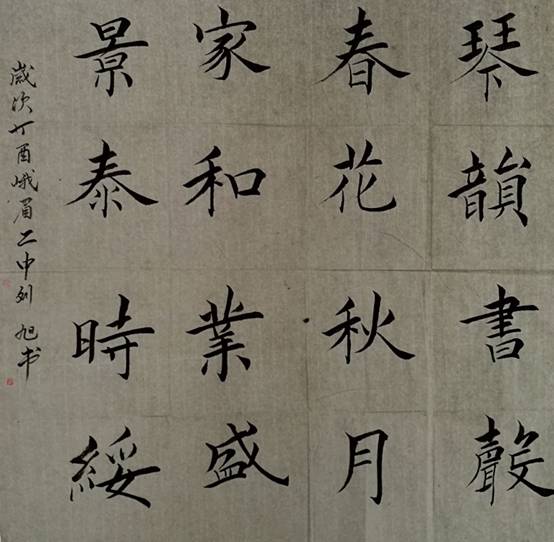 琴韻書聲
春花秋月
家和業盛
景泰時綏
歲次丁酉峨眉二中刘旭书